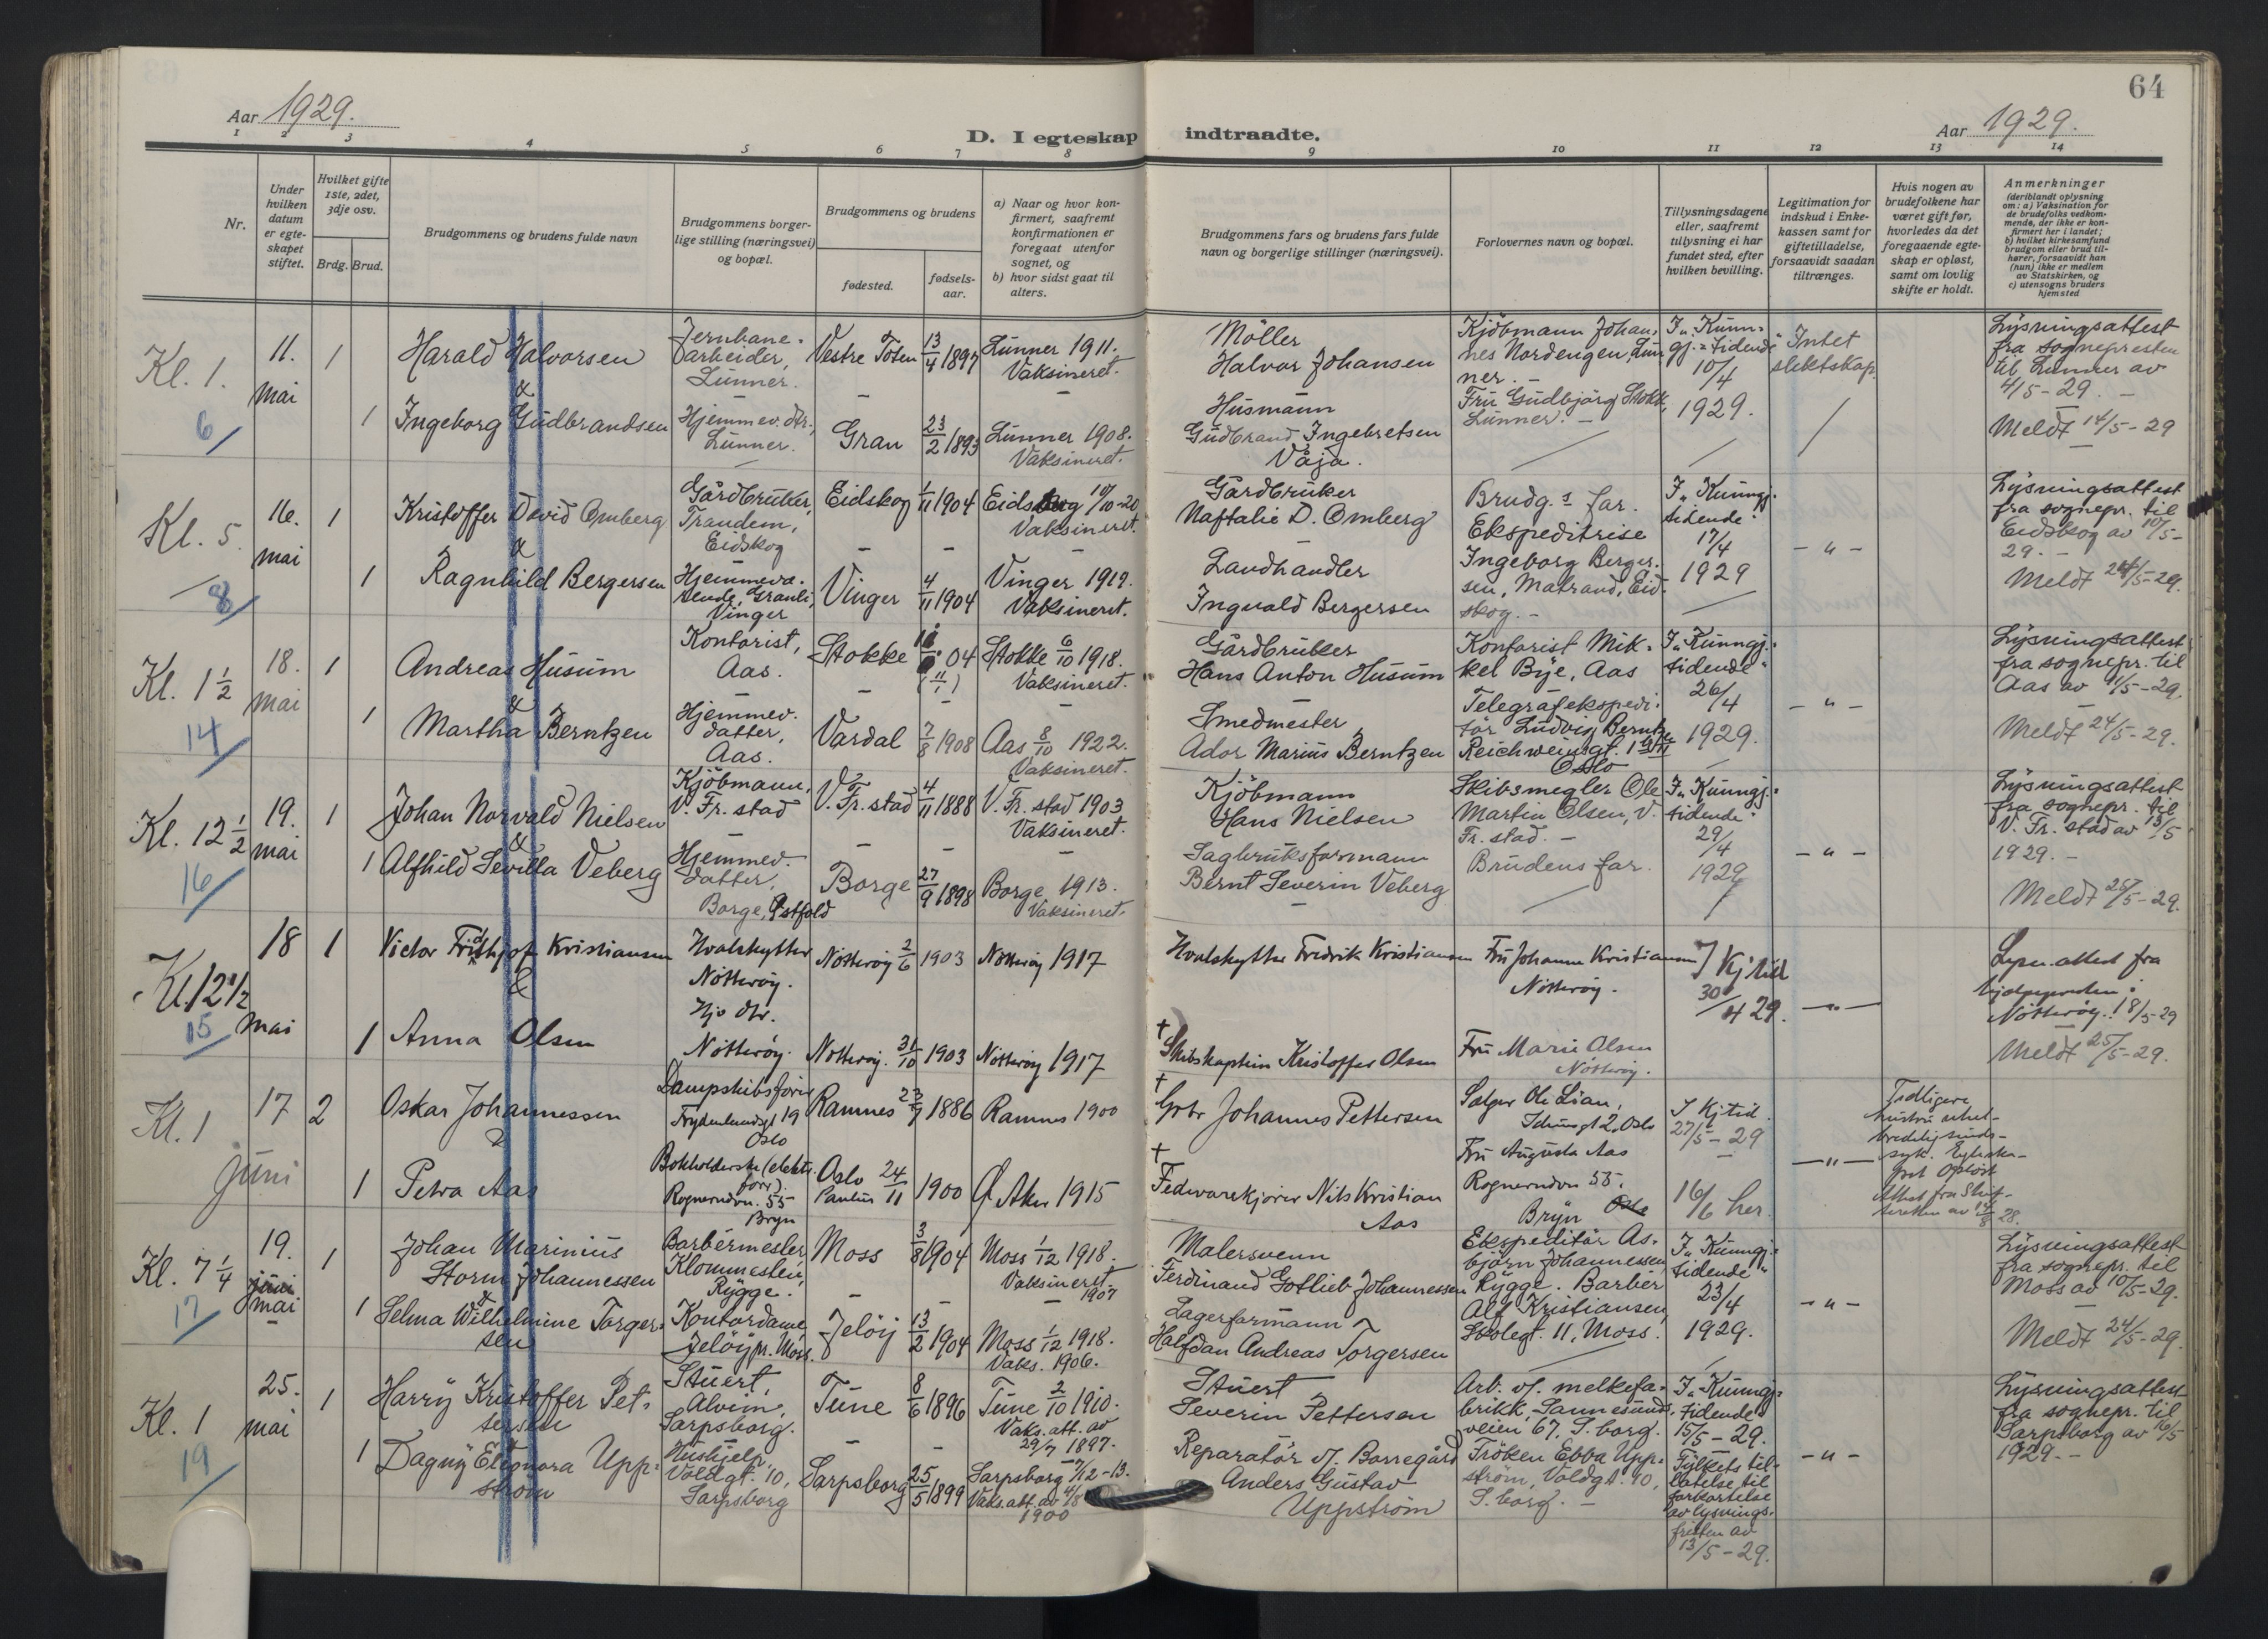 64
Aar 1929.
D. I egteskap indtraadte.
Aar 1929.
1 2 3 4 5 6 7 8 9 10 11 12 13 14
Nr.
Under
hvilken
datum
er egte-
skapet
stiftet.
Hvilket gifte
1ste, 2det,
3dje osv.
Brdg. Brud.
Brudgommens og brudens fulde navn
Brudgommens borger-
lige stilling (næringsvei)
og bopæl.
Brudgommens og brudens
fødested.
fødsels-
aar.
a) Naar og hvor kon-
firmert, saafremt
konfirmationen er
foregaat utenfor
sognet, og
b) hvor sidst gaat til
alters.
Brudgommens fars og brudens fars fulde
navn og borgerlige stillinger (næringsvei).
Forlovernes navn og bopæl.
Tillysningsdagene
eller, saafremt
tillysning ei har
fundet sted, efter
hvilken bevilling.
Legitimation for
indskud i Enke-
kassen samt for
giftetilladelse,
forsaavidt saadan
tiltrænges.
Hvis nogen av
brudefolkene har
været gift før,
hvorledes da det
foregaaende egte-
skap er opløst,
samt om lovlig
skifte er holdt.
Anmerkninger
(deriblandt oplysning
om: a) Vaksination for
de brudefolks vedkom-
mende, der ikke er kon-
firmert her i landet;
b) hvilket kirkesamfund
brudgom eller brud til-
hører, forsaavidt han
(hun) ikke er medlem
av Statskirken, og
c) utensogns bruders
hjemsted
Kl. 1.
6
11.
mai
1
Harald Halvorsen
&
Jernbane-
arbeider,
Lunner.
Vestre Toten
13/4 1897
Lunner 1911.
Vaksineret.
Möller
Halvor Johansen
Kjöbmann Johan-
nes Nordengen, Lun-
ner. -
I „Kunn-
gj.-tidende“
10/4
1929.
Intet
slektskap.
Lysningsattest
fra sognepresten
til Lunner av
4/5-29. -
Meldt 14/5-29
1
Ingeborg Gudbrandsen
Hjemmev. dtr.,
Lunner.
Gran
23/2 1893
Lunner 1908.
Vaksineret.
Husmann
Gudbrand Ingebretsen
Våja.
Fru Gudbjörg Stokk,
Lunner. -
Kl. 5
8
16.
mai
1
Kristoffer David Omberg
&
Gårdbruker,
Trandem,
Eidskog
Eidskog
1/11 1904
Eidskog 10/10-20
Vaksineret.
Gårdbruker
Naftalie D. Omberg
Brudg.s far.
I „Kunngj.-
tidende“
17/4
1929
- " -
Lysningsattest
fra sognepr. til
Eidskog av 10/5-
29. -
Meldt 24/5-29.
1
Ragnhild Bergersen
Hjemmevæ-
rende, Granli,
Vinger
Vinger
4/11 1904
Vinger 1919.
Vaksineret.
Landhandler
Ingvald Bergersen
Ekspeditrise
Ingeborg Berger-
sen, Matrand, Eid-
skog. -
Kl. 1 1/2
14
18.
mai
1
Andreas Husum
&
Kontorist,
Aas.
Stokke
04
(11/1)
Stokke 6/10 1918.
Vaksineret.
Gårdbruker
Hans Anton Husum
Kontorist Mik-
kel Bye, Aas
I „Kunngj.-
tidende“
26/4
1929.
- " -
Lysningsattest
fra sognepr. til
Aas av 11/5-29.
Meldt 24/5-29.
1
Martha Berntzen
Hjemmev.
datter,
Aas.
Vardal
7/8 1908
Aas 8/10 1922.
Vaksineret.
Smedmester
Ador Marius Berntzen
Telegrafekspedi-
tör Ludvig Berntzen
Reichweinsgt.
Oslo
Kl. 12 1/2
16
19.
mai
1
Johan Norvald Nielsen
&
Kjöbmann,
V. Fr. stad
V. Fr. stad
4/11 1888
V. Fr. stad 1903
Vaksineret.
Kjöbmann
Hans Nielsen
Skibsmegler Ole
Martin Olsen, V.
Fr. stad. -
I „Kunngj.-
tidende“
29/4
1929
- " -
Lysningsattest
fra sognepr. til
V. Fr. stad av 13/5
1929. -
Meldt 25/5-29.
1
Alfhild Sevilla Veberg
Hjemmev.
datter,
Borge, Östfold
Borge
27/9 1898
Borge 1913.
Vaksineret.
Sagbruksformann
Bernt Severin Veberg
Brudens far.
Kl. 12 1/2
15
18
mai
1
Victor Fridthjof Kristiansen
&
Hvalskytter
Nötteröy.
Nötteröy
2/6 1903
Nötteröy 1917
Hvalskytter Fredrik Kristiansen
Fru Johanne Kristiansen
Nötteröy.
I Kj. tid
30/4 29.
- " -
Lysn. attest fra
hjelpepresten i
Nötteröy 18/5-29
Meldt 25/5-29.
1
Anna Olsen
Hjv dtr.
Nötteröy.
Nötteröy.
31/10 1903
Nötteröy 1917
† Skibskaptein Kristoffer Olsen
Fru Marie Olsen
Nötteröy.
Kl. 1
17
Juni
2
Oskar Johannessen
&
Dampskibsförer
Frydenlundsgt 19
Oslo
Ramnes
23/9 1886
Ramnes 1900
† Gbr Johannes Pettersen
Selger Ole Lian,
Idunsgt 2, Oslo
I Kj.tid.
27/5-29
16/6 her.
- " -
Tidligere
hustru uhel-
bredelig sinds-
syk. Egteska-
pet oplöst
Attest fra Skif-
teretten av
28.
1
Petra Aas
Bokholderske (elekt.
forr.).
Rognerudvn. 55
Bryn
Oslo
Paulus
24/11 1900
Ö Aker 1915
† Fedevarekjörer Nils Kristian
Aas
Fru Augusta Aas
Rognerudvn 55.
Bryn Oslo
Kl. 7 1/4
17
19.
juni
mai
1
Johan Marinius
Storm Johannessen
&
Barbermester,
Klommesten,
Rygge.
Moss
3/8 1904
Moss 1/12 1918.
Vaksineret
1907
Malersvenn
Ferdinand Gotlieb Johannessen
Ekspeditör As-
björn Johannessen
Rygge. Barber
Alf Kristiansen,
Skolegt. 11, Moss.
I „Kunngj.-
tidende“
23/4
1929.
- " -
Lysningsattest
fra sognepr. til
Moss av 10/5-29.
Meldt 24/5-29.
1
Selma Wilhelmine Torger-
sen
Kontordame,
Jelöy pr. Moss.
Jelöy
13/2 1904
Moss 1/12 1918.
Vaks. 1906.
Lagerformann
Halfdan Andreas Torgersen
Kl. 1
19
25.
mai
1
Harry Kristoffer Pet-
tersen
&
Stuert,
Alvim,
Sarpsborg.
Tune
8/6 1896
Tune 2/10 1910.
Vaks. att. av
29/7 1897.
Stuert
Severin Pettersen
Arb. v/. melkefa-
brikk, Sannesunds-
veien 67, S. borg.
I „Kunngj.-
tidende“
15/5-29.
Fylkets til-
latelse til
forkortelse
av lysnings-
fristen av
13/5-29.
- " -
Lysningsattest
fra sognepr. til
Sarpsborg av 16/5
1929. -
1
Dagny Eleonora Upp-
ström
Hushjelp,
Voldgt. 10,
Sarpsborg
Sarpsborg
25/5 1899
Sarpsborg 7/12-13.
Vaks. att. av 4/8
1900
Reparatör v/. Borregård
Anders Gustav
Uppström
Fröken Ebba Upp-
ström, Voldgt. 10,
S. borg. -